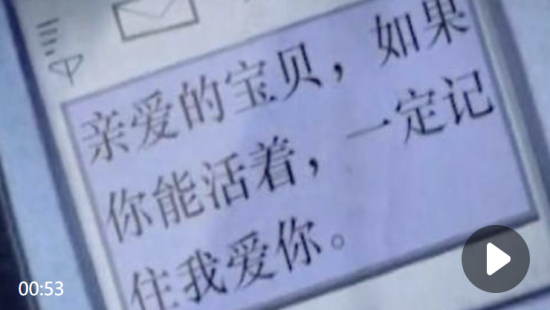 亲爱的宝贝，如果
你能活着，一定记
住我爱你。
00:53